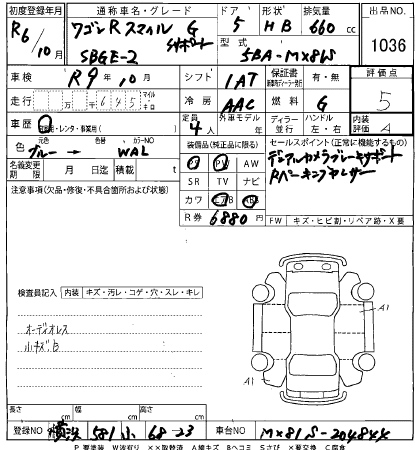 初度登録年月 通称車名・グレード ドア 形状 排気量 出品NO.
R6/10月 ワゴンRスマイル G 5 HB 660 cc 1036
SBGE-2 サポート 型式 5BA-MX81S
車検 R9年10月 シフト 1AT 保証書 有・無 評価点
走行 万 千 645 マイル キロ 冷房 AAC 燃料 G 5
車歴 自家用・レンタ・事業用( ) 定員 4人 外車モデル 年 ディーラー 並行 ハンドル 左・右 内装評価 A
色 元色 ブルー → 色替 カラーNO WAL 装備品(純正品に限る) セールスポイント(正常に機能するもの)
名義変更期限 月 日迄 積載 t PS PW AW デュアルカメラブレーキサポート
注意事項(欠品・修復・不具合箇所および状態) SR TV ナビ Rパーキングセンサー
カワ エアB ABS
R券 6880円 FW キズ・ヒビ割・リペア跡・X要
検査員記入 内装 キズ・汚レ・コゲ・穴・スレ・キレ
A1
オーディオレス
小キズB
A1
長さ cm 幅 cm 高さ cm
登録NO 横浜 581 ふ 68-23 車台NO MX81S-2048XX
P 要塗装 W波有り XX取替済 A線キズ Bヘコミ Sさび X要交換 C腐食